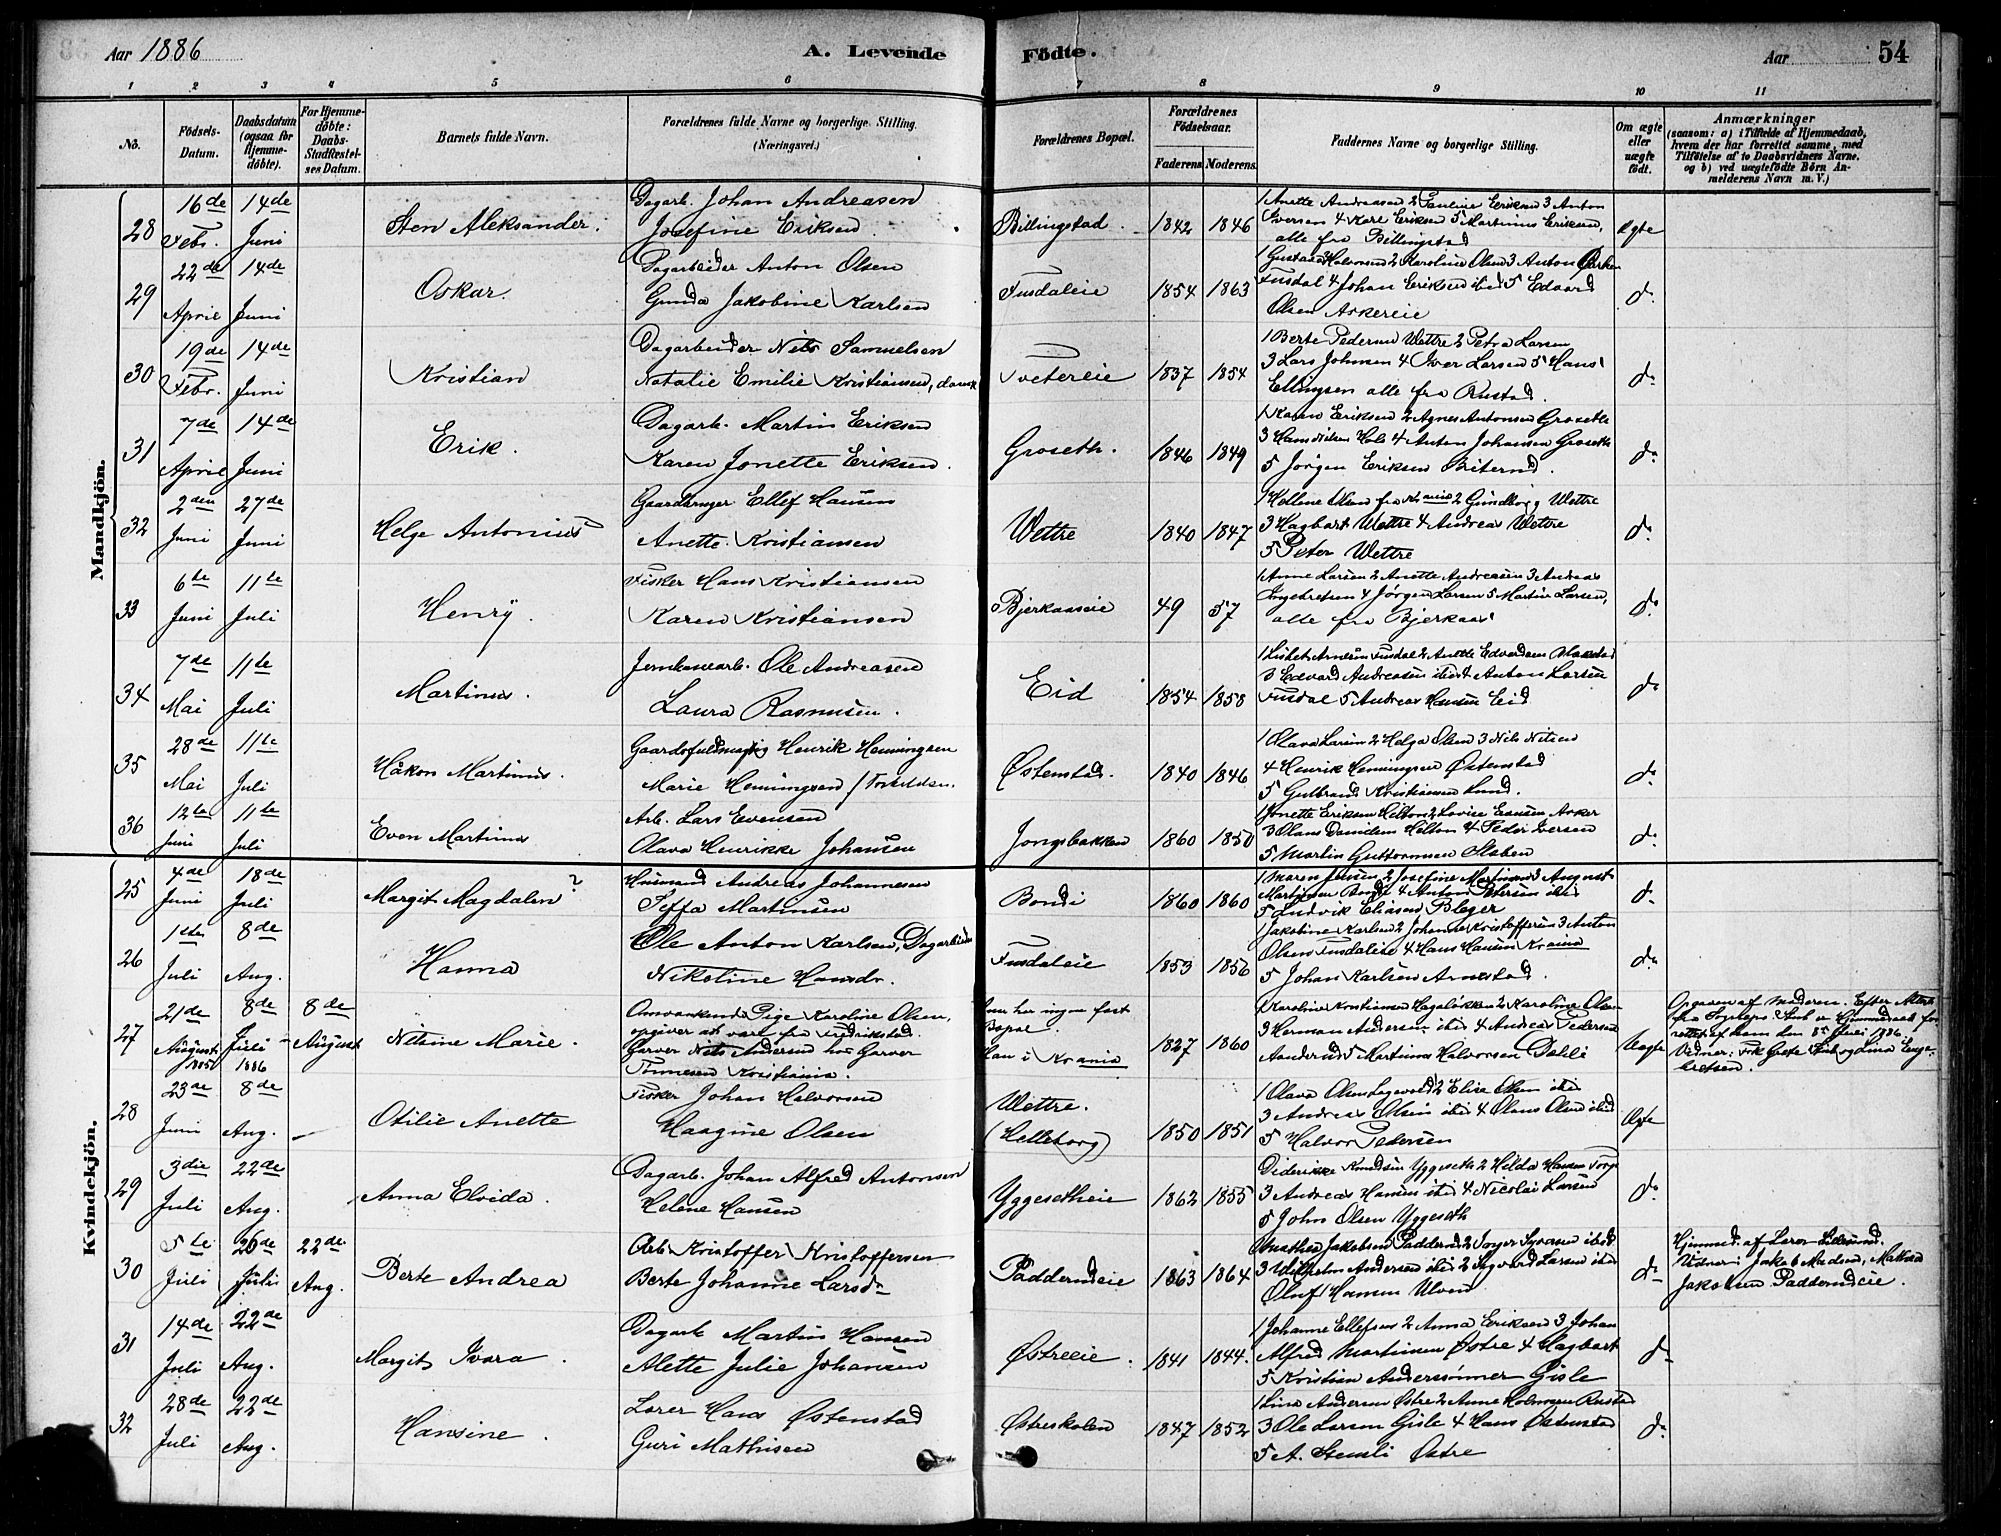 Aar 1886
A. Levende
Födte.
Aar
54
1 2 3 4 5 6 7 8 9 10 11
No.
Födsels-Datum.
Daabsdatum (ogsaa for Hjemme-döbte).
For Hjemme-döbte: Daabs-Stadfæstel-ses Datum.
Barnets fulde Navn.
Forældrenes fulde Navne og borgerlige Stilling. (Næringsvei.)
Forældrenes Bopæl.
Forældrenes Födselsaar.
Faderens. Moderens.
Faddernes Navne og borgerlige Stilling.
Om ægte eller uægte födt.
Anmærkninger
(saasom: a) i Tilfælde af Hjemmedaab, hvem der har forrettet samme, med Tilföielse af to Daabsvidners Navne, og b) ved uægtefödte Börn An-melderens Navn m. V.)
Mandkjön.
28 16de Febr. 14de Juni Sten Aleksander.
Dagarb. Johan Andreasen
Josefine Eriksen
Billingstad. 1842 1846
1 Anette Andreasen 2 Pauline Eriksen 3 Anton
Iversen 4 Karl Eriksen 5 Martinius Eriksen,
alle fra Billingstad
Ægte
29 22de April 14de Juni Oskar.
Dagarbeider Anton Olsen
Gunda Jakobine Karlsen
Fusdaleie 1854 1863
1 Gustava Halvorsen 2 Karoline Olsen 3 Anton
Fusdal 4 Johan Eriksen ibid 5 Edvard
Olsen Askereie
do
30 19de Febr. 14de Juni Kristian
Dagarbeider Nils Samuelsen
Natalie Emilie Kristiansen, dansk
Tvetereie 1837 1854
1 Berte Pedersen Wettre 2 Petra Larsen
3 Lars Johnsen 4 Iver Larsen 5 Hans
Ellingsen alle fra Rustad.
do
31 7de April 14de Juni Erik.
Dagarb. Martin Eriksen
Karen Jonette Eriksen.
Groseth. 1846 1849
1 Karen Eriksen 2 Agnes Antonsen Groseth
3 Hans Hole 4 Anton Johansen Groseth
5 Jörgen Eriksen Biterud.
do
32 2den Juni 27de Juni Helge Antonius
Gaardbruger Ellef Hansen
Anette Kristiansen
Wettre 1840 1847
1 Hellene Olsen fra Krania 2 Gundborg Wettre
3 Hagbart Wettre 4 Andreas Wettre
5 Peter Wettre
do
33 6te Juni 11te Juli Henry.
Fisker Hans Kristiansen
Karen Kristiansen
Bjerkaaseie 49 57
1 Anne Larsen 2 Anette Andreasen 3 Andreas
Ingebretsen 4 Jörgen Larsen 5 Martin Larsen,
alle fra Bjerkaas
do
34 7de Mai 11te Juli Martinus.
Jernbanearb. Ole Andreasen
Laura Rasmusen.
Eid 1854 1858
1 Lisbet Arnesen Fusdal 2 Anette Edvardsen
3 Edvard Andreasen ibid 4 Anton Larsen
Fusdal 5 Andreas Hansen Eid
do
35 28de Mai 11te Juli Håkon Martinus.
Gaardsfuldmægtig Henrik Henningsen
Marie Henningsen / Torkildsen.
Østenstad. 1840 1846
1 Olava Larsen 2 Helga Olsen 3 Nils Nilsen
4 Henrik Henningsen Østenstad
5 Gulbrand Kristiansen Lund.
do
36 12te Juni 11te Juli Even Martinus
Arb. Lars Evensen
Olava Henrikke Johansen
Jongsbakken 1860 1850
1 Jonette Eriksen Helton 2 Lovise Evensen Asker
3 Olaus Davidsen Helton 4 Peder Iversen
5 Martin Guttormsen Staben
do
Kvindekjön.
25 4de Juni 18de Juli Margit Magdalen ?
Husmand Andreas Johannesen
Seffa Martinsen
Bondi 1860 1860
1 Maren Jensen 2 Josefine Martinsen 3 August
Martinsen Bondi 4 Anton Petersen ibid
5 Ludvik Eliasen Bleger
do
26 1ste Juli 8de Aug. Hanna
Ole Anton Karlsen, Dagarbeider
Nikoline Hansdr.
Fusdaleie 1853 1856
1 Jakobine Karlsen 2 Johanne Kristoffersen 3 Anton
Olsen Fusdaleie 4 Hans Hansen Krania
5 Johan Karlsen Arnestad.
do
27 21de August 1885 8de Juli 1886 8de August Nilsine Marie.
Omvankende Pige Karoline Olsen,
opgiver at være fra Fredrikstad.
Garver Nils Andersen hos Garver
Tönnesen Kristiania.
hun har ingen fast
Bopæl.
han i Krania 1827 1860
1 Karoline Kristiansen Hagelökken 2 Karoline Olsen
3 Herman Andersen ibid 4 Andreas Pedersen
Aanderud 5 Martinus Halvorsen Dahli
Uægte
Opgaven af Moderen. Efter Attest
fra Sogneprest er Hjemmedaab for-
rettet af ham den 8de Juli 1886.
Vidner: og Lina Enge-
bretsen.
28 23de Juni 8de Aug. — Otilie Anette
Fisker Johan Halvorsen
Haagine Olsen
Wettre.
(Helleborg) 1850 1851
1 Olava Olsen 2 Elise Olsen ibid
3 Andreas Olsen ibid 4 Olaus Olsen ibid
5 Halvor Pedersen
Ægte
29 3die Juli 22de Aug. Anna Elvida.
Dagarb. Johan Alfred Antonsen
Helene Hansen
Yggesetheie 1862 1855
Diderikke Knudsen Yggeseth 2 Hilda Hansen Torp
3 Andreas Hansen ibid 4 Nicolai Larsen
5 John Olsen Yggeseth
do
30 5te Juli 26de Juli 22de Aug. Berte Andrea
Arb. Kristoffer Kristoffersen
Berte Johanne Larsdr
Paddemdeie 1863 1864
Mathea Jakobsen Padderud 2 ibid
3 Wilhelm Andersen ibid 2 Sigvard Larsen ibid
Oluf Hansen Ulven
do
Hjemmed. af Lærer Lillesund.
Vidner: Jakob Madsen, Mathea
Jakobsen Padderudeie.
31 14de Juli 22de Aug. Margit Ivara.
Dagarb Martin Hansen
Alette Julie Johansen
Østreeie. 1841 1844.
1 Johanne Ellefsen 2 Anna Eriksen 3 Johan
Alfred Martinsen Østre 4 Hagbart
5 Kristian Anderssönner Gisle
do
32 28de Juli 22de Aug. Hansine.
Lærer Hans Østenstad
Guri Mathisen
Østreskolen 1847 1852
1 Lina Andersen Østre 2 Anne Holmsen Rustad
3 Ole Larsen Gisle 4 Hans Østenstad
5 A. Stensli Østre
do